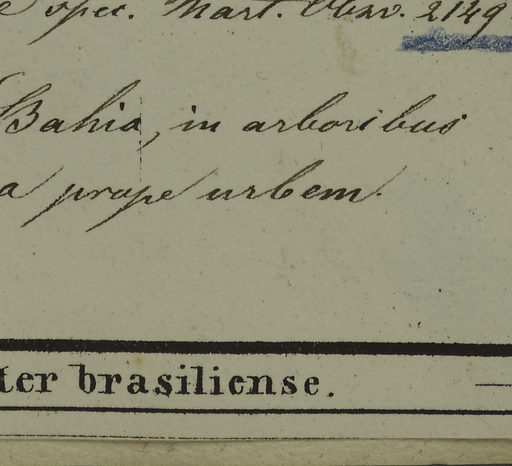 e spec. Mart. Obsv. 2149
Bahia, in arboribus
a prope urbem.
ter brasiliense.